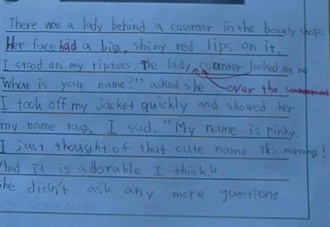 There was a lady behind a counter in the beauty shop.
Her face had a big, shiny red lips on it.
I stood on my tiptoes. The lady counter looked at me
What is your name?" asked she over the
I took off my jacket quickly and showed her
my name tag. I said, "My name is pinky.
I just thought of that cute name this morning!
And it is adorable I think."
She didn't ask any more questions